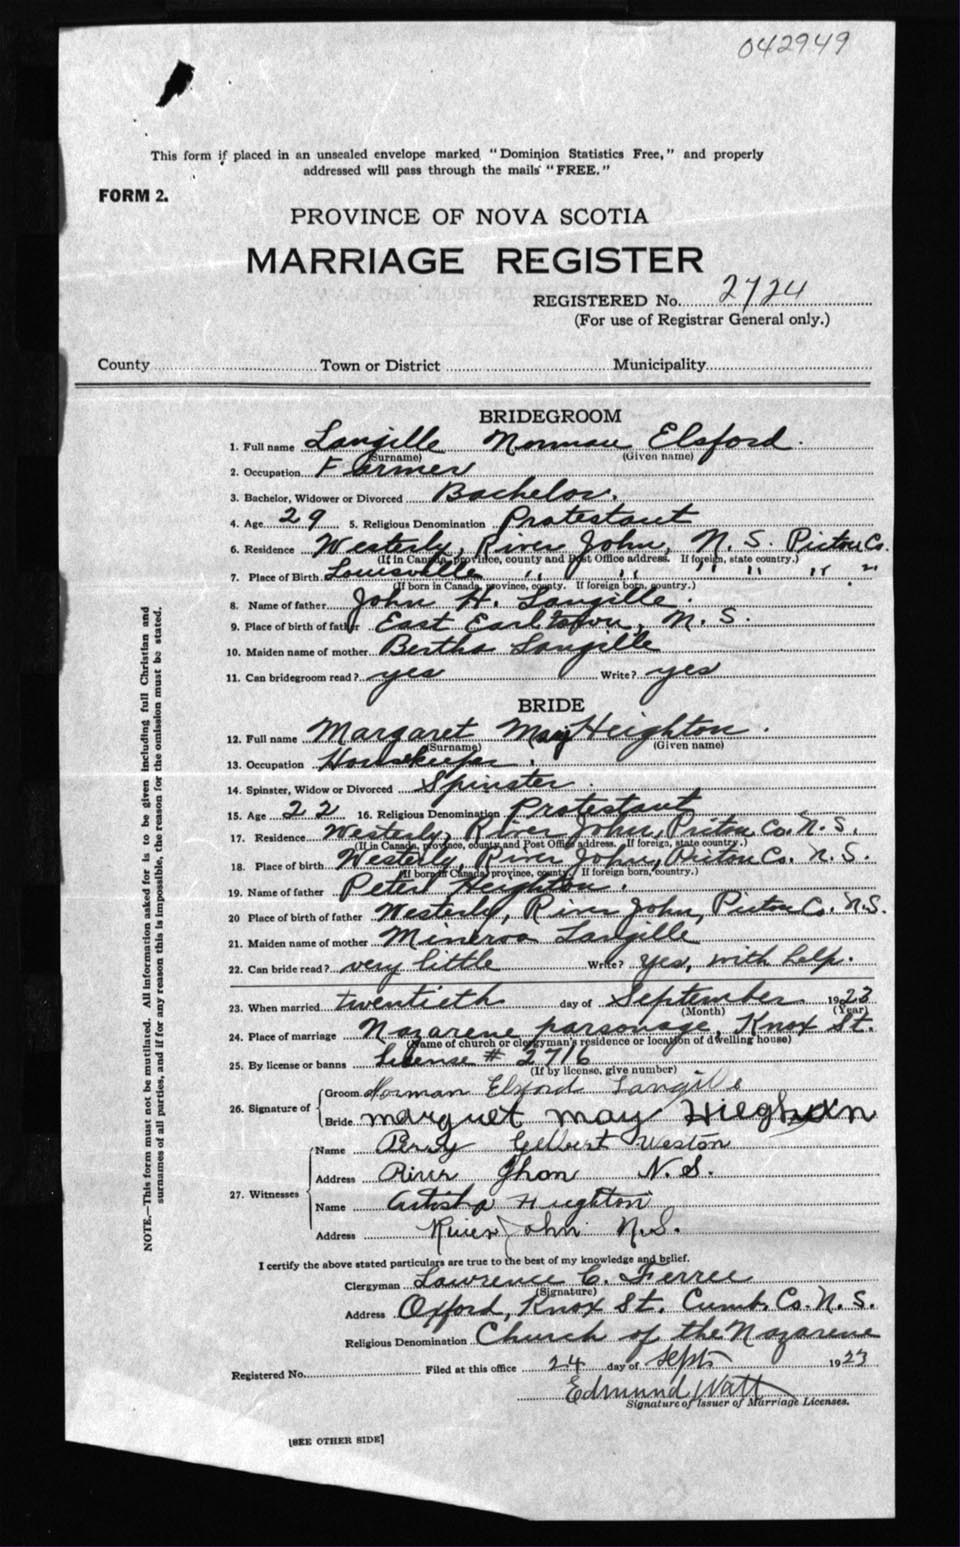 042949
This form if placed in an unsealed envelope marked "Dominion Statistics Free," and properly
addressed will pass through the mails "FREE."
FORM 2.
PROVINCE OF NOVA SCOTIA
MARRIAGE REGISTER
REGISTERED No. 2724
(For use of Registrar General only.)
County Town or District Municipality
BRIDEGROOM
1. Full name Langille Norman Elsford.
(Surname) (Given name)
2. Occupation Farmer
3. Bachelor, Widower or Divorced Bachelor.
4. Age 29 5. Religious Denomination Protestant
6. Residence Westerly, River John, N. S. Pictou Co.
(If in Canada, province, county and Post Office address. If foreign, state country.)
7. Place of Birth Louisville " " " " " "
(If born in Canada, province, county. If foreign born, country.)
8. Name of father John H. Langille.
9. Place of birth of father East Earltown, N. S.
10. Maiden name of mother Bertha Langille
11. Can bridegroom read? yes Write? yes
BRIDE
12. Full name Margaret May Heighton.
(Surname) (Given name)
13. Occupation Housekeeper.
14. Spinster, Widow or Divorced Spinster
15. Age 22 16. Religious Denomination Protestant
17. Residence Westerly, River John, Pictou Co. N. S.
(If in Canada, province, county and Post Office address. If foreign, state country.)
18. Place of birth Westerly, River John, Pictou Co. N. S.
(If born in Canada, province, county. If foreign born, country.)
19. Name of father Peter Heighton.
20 Place of birth of father Westerly, River John, Pictou Co. N.S.
21. Maiden name of mother Minerva Langille
22. Can bride read? very little Write? yes, with help.
23. When married twentieth day of September 1923
(Month) (Year)
24. Place of marriage Nazarene parsonage, Knox St.
(Name of church or clergyman's residence or location of dwelling house)
25. By license or banns License # 2716
(If by license, give number)
26. Signature of
Groom Norman Elsford Langille
Bride marguet may
27. Witnesses
Name Percy Gelbert Weston
Address River Jhon N.S.
Name Heighton
Address River John N.S.
I certify the above stated particulars are true to the best of my knowledge and belief.
Clergyman Lawrence C. Ferree
(Signature)
Address Oxford, Knox St. Cumb. Co. N. S.
Religious Denomination Church of the Nazarene
Registered No. Filed at this office 24 day of Sept 1923
Edmund Watt
Signature of Issuer of Marriage Licenses.
[SEE OTHER SIDE]
NOTE.—This form must not be mutilated. All information asked for is to be given including full Christian and
surnames of all parties, and if for any reason this is impossible, the reason for the omission must be stated.